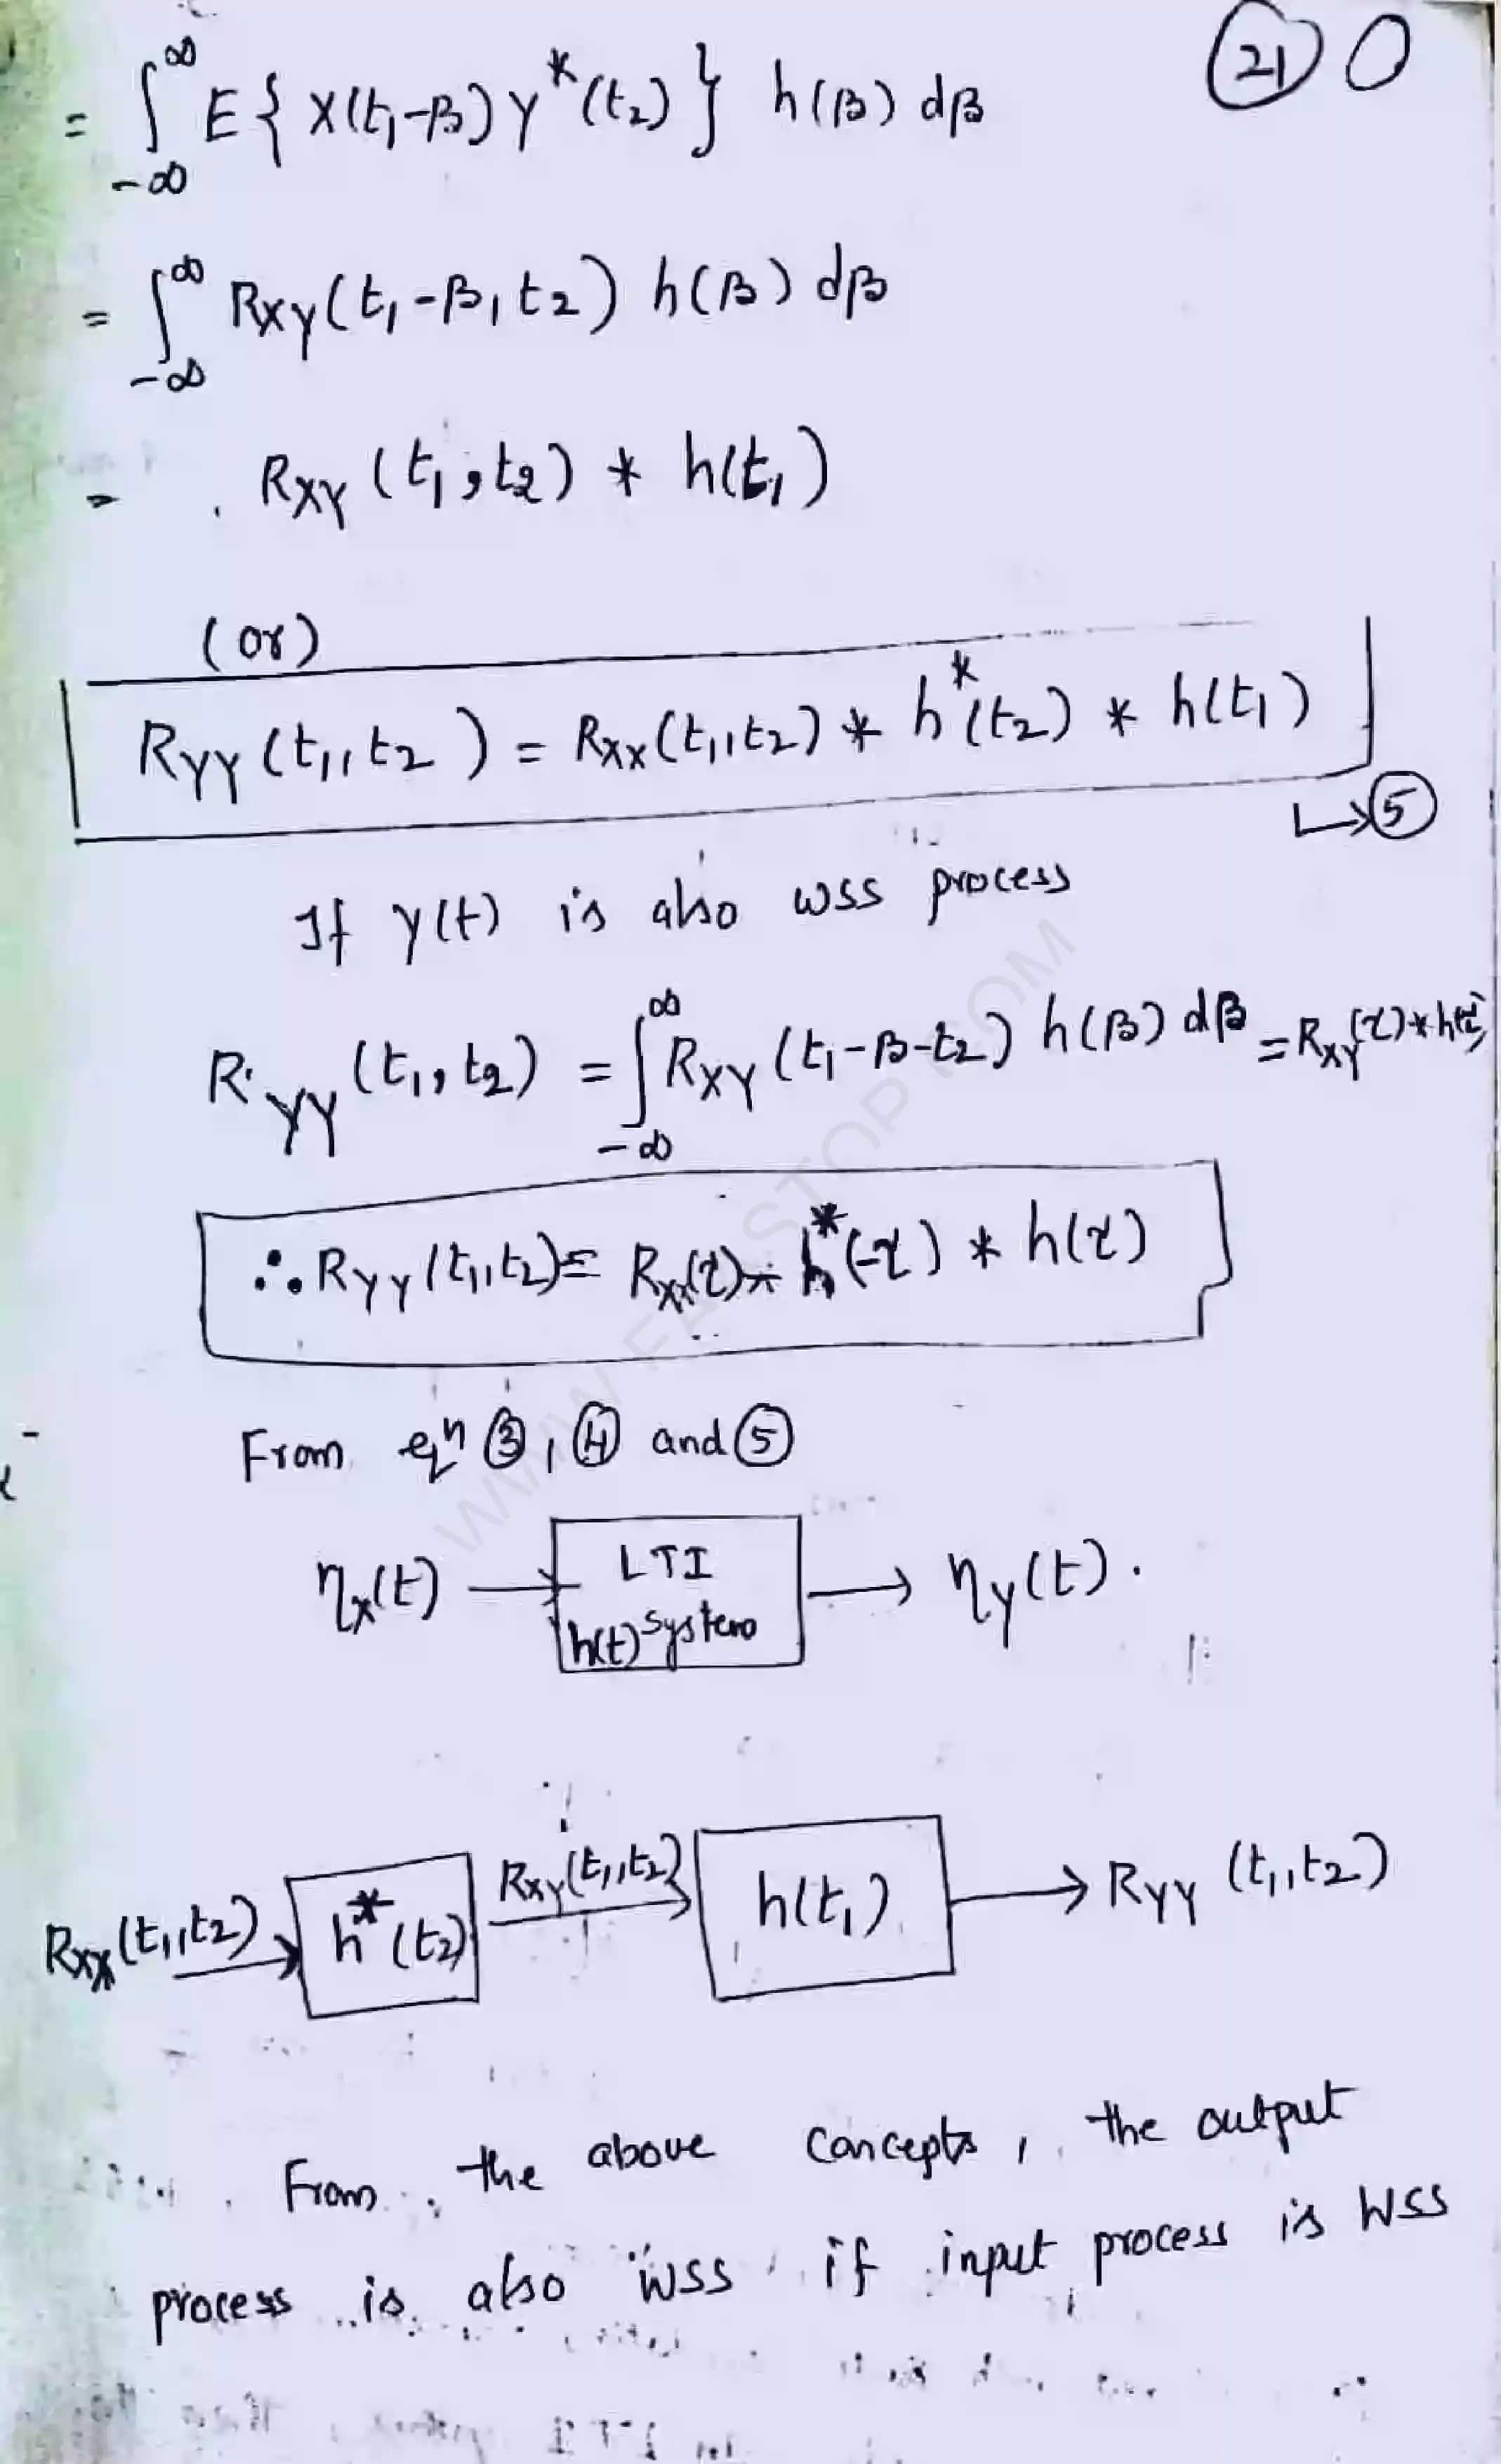 21
= ∫_{-∞}^{∞} E{ X(t₁-β) Y*(t₂) } h(β) dβ
= ∫_{-∞}^{∞} R_XY(t₁-β, t₂) h(β) dβ
= R_XY (t₁, t₂) * h(t₁)
(or)
R_YY (t₁, t₂) = R_XX (t₁, t₂) * h*(t₂) * h(t₁)
→ 5
If Y(t) is also WSS process
R_YY (t₁, t₂) = ∫_{-∞}^{∞} R_XY (t₁-β-t₂) h(β) dβ = R_XY(τ) * h(τ)
∴ R_YY (t₁, t₂) = R_XX(τ) * h*(-τ) * h(τ)
From eqn 3, 4 and 5
η_X(t) → LTI h(t) system → η_Y(t).
R_XX (t₁, t₂) → h*(t₂) R_XY (t₁, t₂) → h(t₁) → R_YY (t₁, t₂)
From the above concepts, the output
process is also WSS if input process is WSS